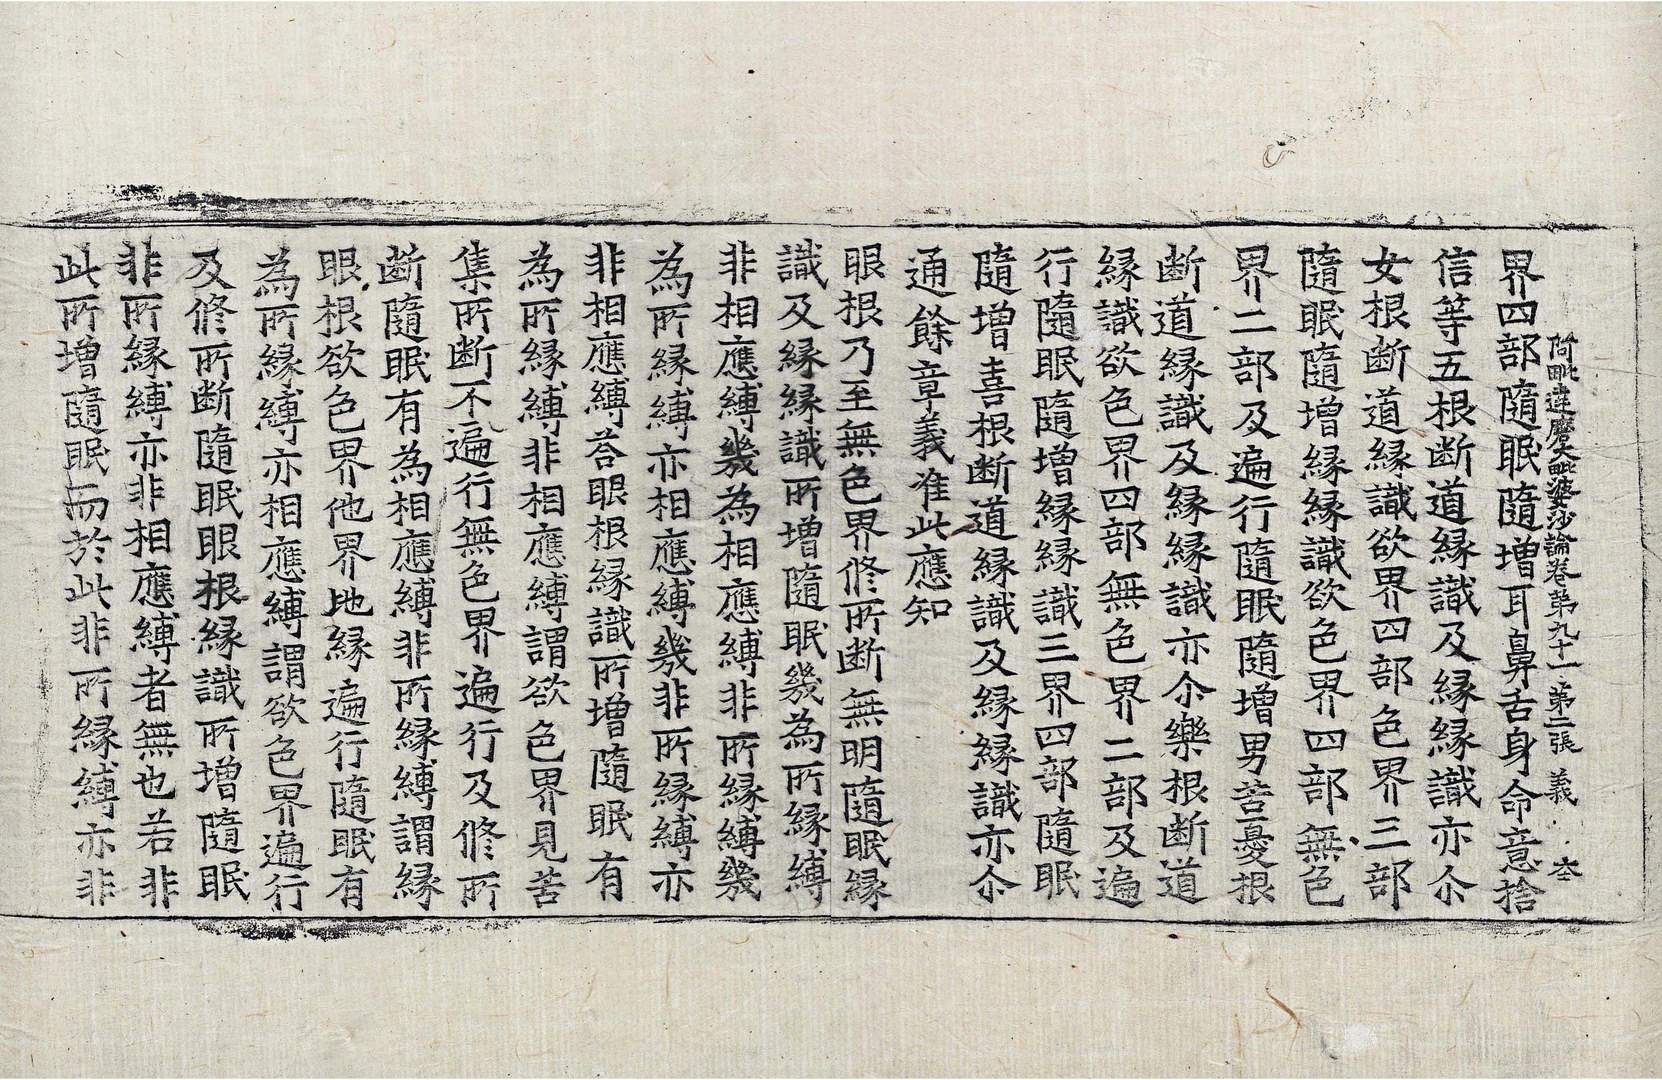 阿毗達磨大毗婆沙論卷第九十一 第二張 義
界四部隨眠隨增耳鼻舌身命意捨
信等五根断道縁識及縁縁識亦尒
女根断道縁識欲界四部色界三部
隨眠隨增縁縁識欲色界四部無色
界二部及遍行隨眠隨增男苦憂根
断道縁識及縁縁識亦尒樂根断道
縁識欲色界四部無色界二部及遍
行隨眠隨增縁縁識三界四部隨眠
隨增喜根断道縁識及縁縁識亦尒
通餘章義准此應知
眼根乃至無色界修所断無明隨眠縁
識及縁縁識所增隨眠幾為所縁縛
非相應縛幾為相應縛非所縁縛幾
為所縁縛亦相應縛幾非所縁縛亦
非相應縛荅眼根縁識所增隨眠有
為所縁縛非相應縛謂欲色界見苦
集所断不遍行無色界遍行及修所
断隨眠有為相應縛非所縁縛謂縁
眼根欲色界他界地縁遍行隨眠有
為所縁縛亦相應縛謂欲色界遍行
及修所断隨眠眼根縁識所增隨眠
非所縁縛亦非相應縛者無也若非
此所增隨眠而於此非所縁縛亦非